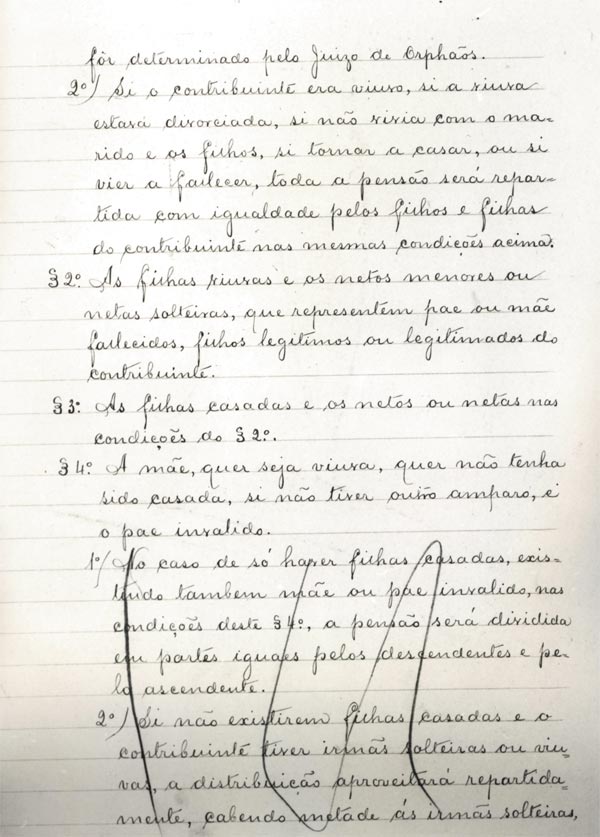 fôr determinado pelo Juizo de Orphãos.
2º) Si o contribuinte era viuvo, si a viuva
estava divorciada, si não vivia com o ma-
rido e os filhos, si tornar a casar, ou si
vier a fallecer, toda a pensão será repar-
tida com igualdade pelos filhos e filhas
do contribuinte nas mesmas condições acima.
§ 2º. As filhas viuvas e os netos menores ou
netas solteiras, que representem pae ou mãe
fallecidos, filhos legitimos ou legitimados do
contribuinte.
§ 3º. As filhas casadas e os netos ou netas nas
condições do § 2º.
§ 4º. A mãe, quer seja viuva, quer não tenha
sido casada, si não tiver outro amparo, e
o pae invalido.
1º) No caso de só haver filhas casadas, exis-
tindo tambem mãe ou pae invalido, nas
condições deste § 4º, a pensão será dividida
em partes iguaes pelos descendentes e pe-
lo ascendente.
2º) Si não existirem filhas casadas e o
contribuinte tiver irmãs solteiras ou viu-
vas, a distribuição aproveitará repartida-
mente, cabendo metade ás irmãs solteiras,